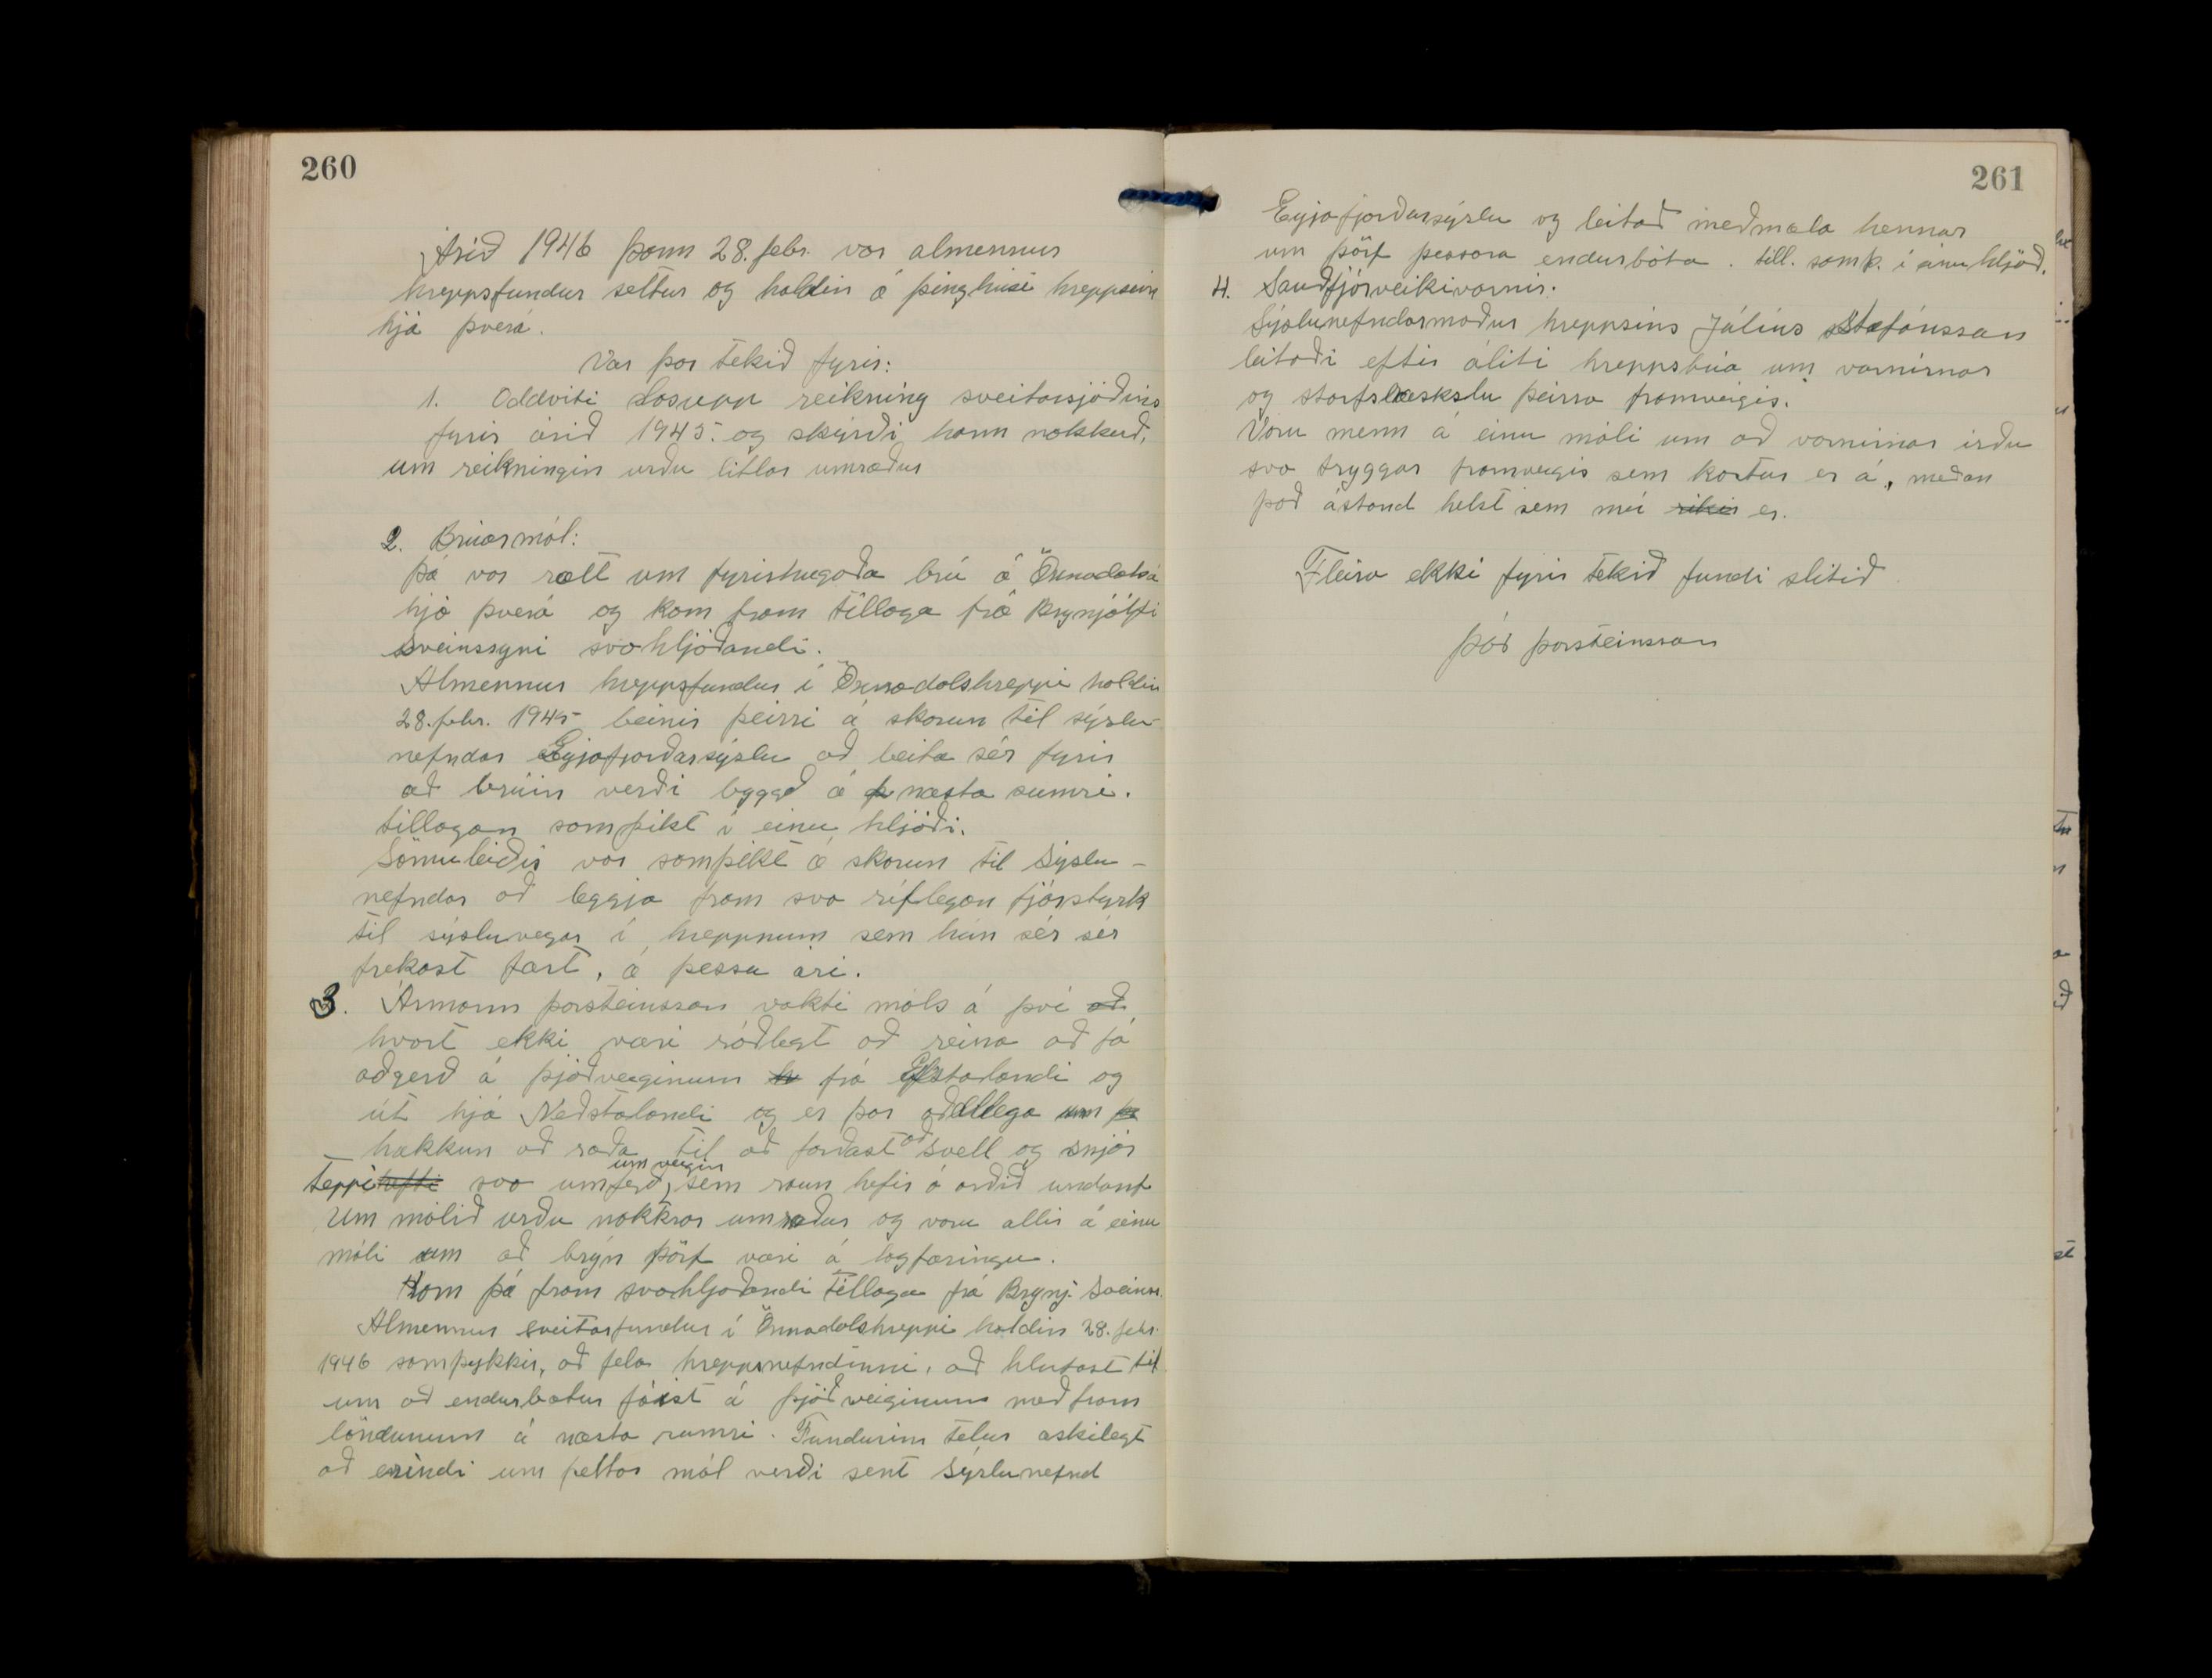 260
Árið 1946 þann 28. febr. var almennur
hreppsfundur settur og haldin á þinghúsi hreppsins
hjá þverá.
Var þar tekið fyrir:
1. Oddviti las upp reikning sveitarsjóðins
fyrir árið 1945. og skýrði hann nokkuð,
um reikningin urðu litlar umræður
2. Brúarmál:
Þá var rætt um fyrirhugaða brú á Öxnadalsá
hjá þverá og kom fram tillaga frá Brynjólfi
Sveinssyni svohljóðandi.
Almennur hreppsfundur í Öxnadalshreppi haldin
28. febr. 1945 beinir þeirri á skorun til sýslu-
nefndar Eyjafjarðarsýslu að beita sér fyrir
að brúin verði byggð á næsta sumri.
tillagan samþikt í einu hljóði.
Sömuleiðis var samþikt á skorun til Sýslu-
nefndar að leggja fram svo ríflegan fjárstyrk
til sýsluvegar í hreppnum sem hún sér sér
frekast fært, á þessu ári.
3. Ármann þorsteinsson vakti máls á því að
hvort ekki væri ráðlegt að reina að fá
aðgerð á þjóðveiginum h frá Efstalandi og
út hjá Neðstalandi og er þar aðallega um þa
hækkun að ræða til að forðast að svell og snjór
teppi hefti svo umferð, um veigin sem raun hefir á orðið undanf
Um málið urðu nokkrar umræður og voru allir á einu
máli um að brýn þörf væri á lagfæringu.
Kom þá fram svohljóðandi tillaga frá Brynj. Sveinss.
Almennur sveitarfundur í Öxnadalshreppi haldin 28. febr.
1946 samþykkir, að fela hreppsnefndinni, að hlutast til
um að endurbætur fáist á þjóðveiginum með fram
löndunum á næsta sumri. Fundurinn telur æskilegt
að erindi um þettað mál verði sent Sýslunefnd
261
Eyjafjarðarsýslu og leitað meðmæla hennar
um þörf þessara endurbóta. till. samþ. í einu hljóð.
4. Sauðfjárveikivarnir:
Sýslunefndarmaður hreppsins Júlíus Stefánsson
leitaði eftir áliti hreppsbúa um varnirnar
og starfrækslu þeirra framveigis.
Voru menn á einu máli um að varnirnar irðu
svo tryggar framveigis sem kostur er á, meðan
það ástand helst sem nú ríkir er.
Fleira ekki fyrir tekið fundi slitið
Þór þorsteinsson